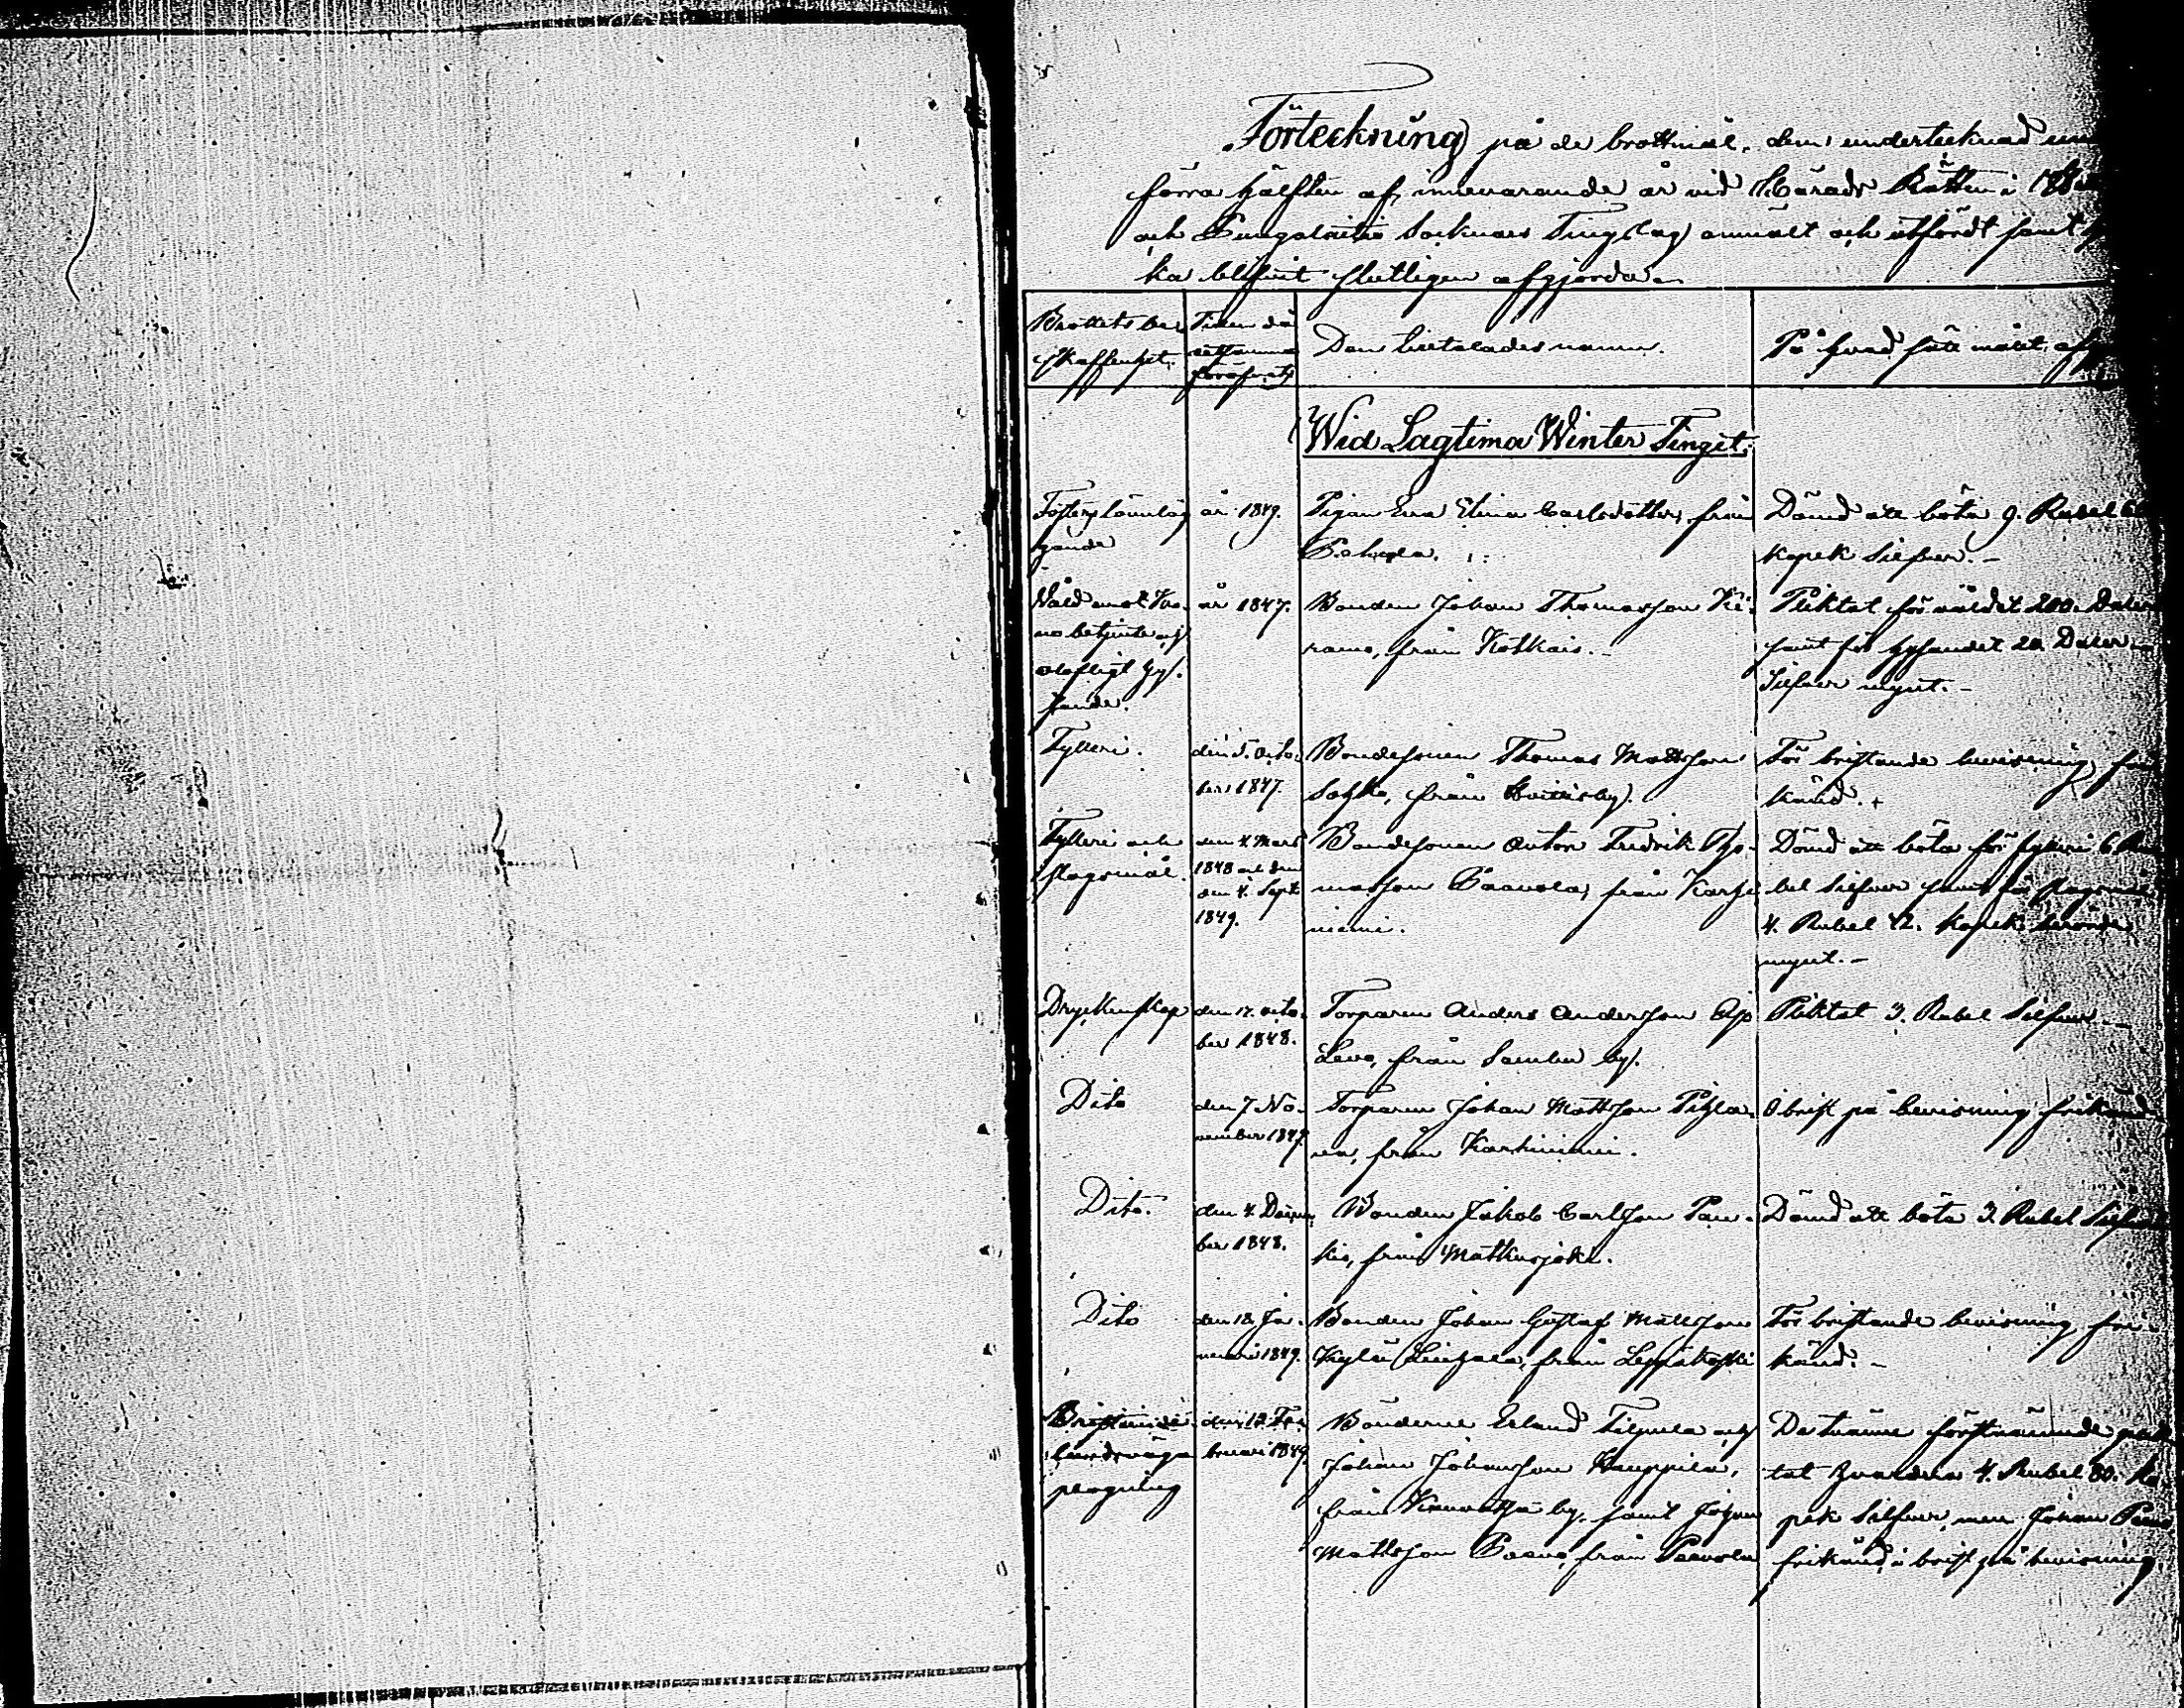 Förteckning på de brottmål, dem undertecknad un
förra hälften af innevarande år vid Härads Rätten i
och Pungalaitio Socknars Tingslag anmält och utfördt samt
ka blifvit slutligen afgjorda
Brottets be
skaffenhet.
Tiden då
detsamma
föröfvats
Den tilltalades namn.
På hvad sätt målet af
Wid Lagtima Winter Tinget.
Fosters lönnläg
gande
år 1849.
Pigan Eva Elina Carlsdotter, från
Dömd att böta 9. Rubel
kopek Silfver.-
Våld emot Kro-
no betjente och
olofligt hy-
sande.
år 1847.
Bonden Johan Thomasson
ramo, från
Pliktat för våldet 200. Daler
samt för hysandet 20. Daler
Silfver mynt.-
Fylleri.
den 5. Octo-
ber 1847.
Bondesonen Thomas Mattsson
från
För bristande bevisning fri
känd.
Fylleri och
slagsmål.
den 4. Mars
1848 och den
den 4. Sept.
1849.
Bondesonen Anton Fredrik Tho-
masson Paavola, från Karhi
niemi.
Dömd att böta för fylleri 6 Ru
bel Silfver samt för slagsmål
4. Rubel 42. kopek
mynt.-
Dryckenskap
den 17. Octo-
ber 1848.
Torparen Anders Andersson
från Sambu by.
Pliktat 3. Rubel Silfver.-
Dito
den 7. No-
vember 1847.
Torparen Johan Mattsson
från Karhiniemi.
I brist på bevisning frikänd
Dito.
den 4. Decem-
ber 1848.
Bonden Jakob Carlsson
från Matkusjoki.
Dömd att böta 3. Rubel Silfver
Dito
den 18. Ja-
nuari 1849.
Bonden Johan Gustaf Mattsson
Kylä Liuhala, från Leppäkoski
För bristande bevisning fri-
känd.-
Bristande
landsväga
plogning
den 12. Fe-
bruari 1849.
Bönderne Erland Filpula och
Johan Johansson Kauppila,
från by, samt Johan
Mattsson Paavo, från Paavola
De tvänne förstnämnde plik
tat hvardera 4. Rubel 80. ko
pek Silfver, men Johan Paavo
frikänd i brist på bevisning.